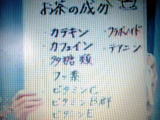 お茶の成分
・カテキン ・フラボノイド
・カフェイン ・テアニン
・多糖類
・フッ素
・ビタミンC
・ビタミンB群
・ビタミンE